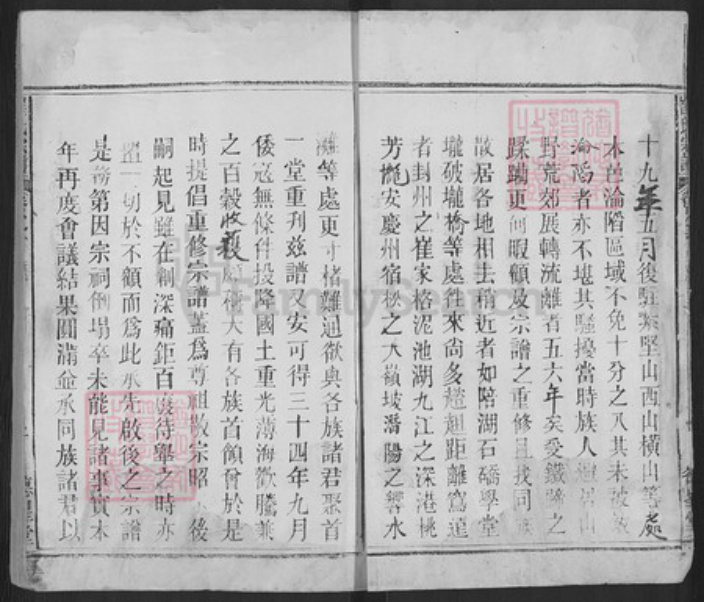 十九年五月後駐紮堅山西山橫山等處
本邑淪陷區域不免十分之八其未被
淪陷者亦不堪其騷擾當時族人避居山
野荒郊展轉流離者五六年矣受鐵蹄之
蹂躪更何暇顧及宗譜之重修且我同族
散居各地相去稍近者如陪湖石磻學堂
壠破壠橋等處往來尚多趑趄距離窵遠
者封州之崔家格泥池湖九江之深港桃
芳壠安慶州宿松之大嶺坡潛陽之響水
灘等處更寸楮難通欲與各族諸君聚首
一堂重刊茲譜又安可得三十四年九月
倭寇無條件投降國土重光薄海歡騰兼
之百穀收穫大有各族首領曾於是
時提倡重修宗譜蓋爲尊祖敬宗昭後
嗣起見雖在創深痛鉅百廢待舉之時亦
置一切於不顧而爲此承先啟後之宗譜
是務第因宗祠倒塌卒未能見諸事實本
年再度會議結果圓滿僉承同族諸君以
FamilySearch